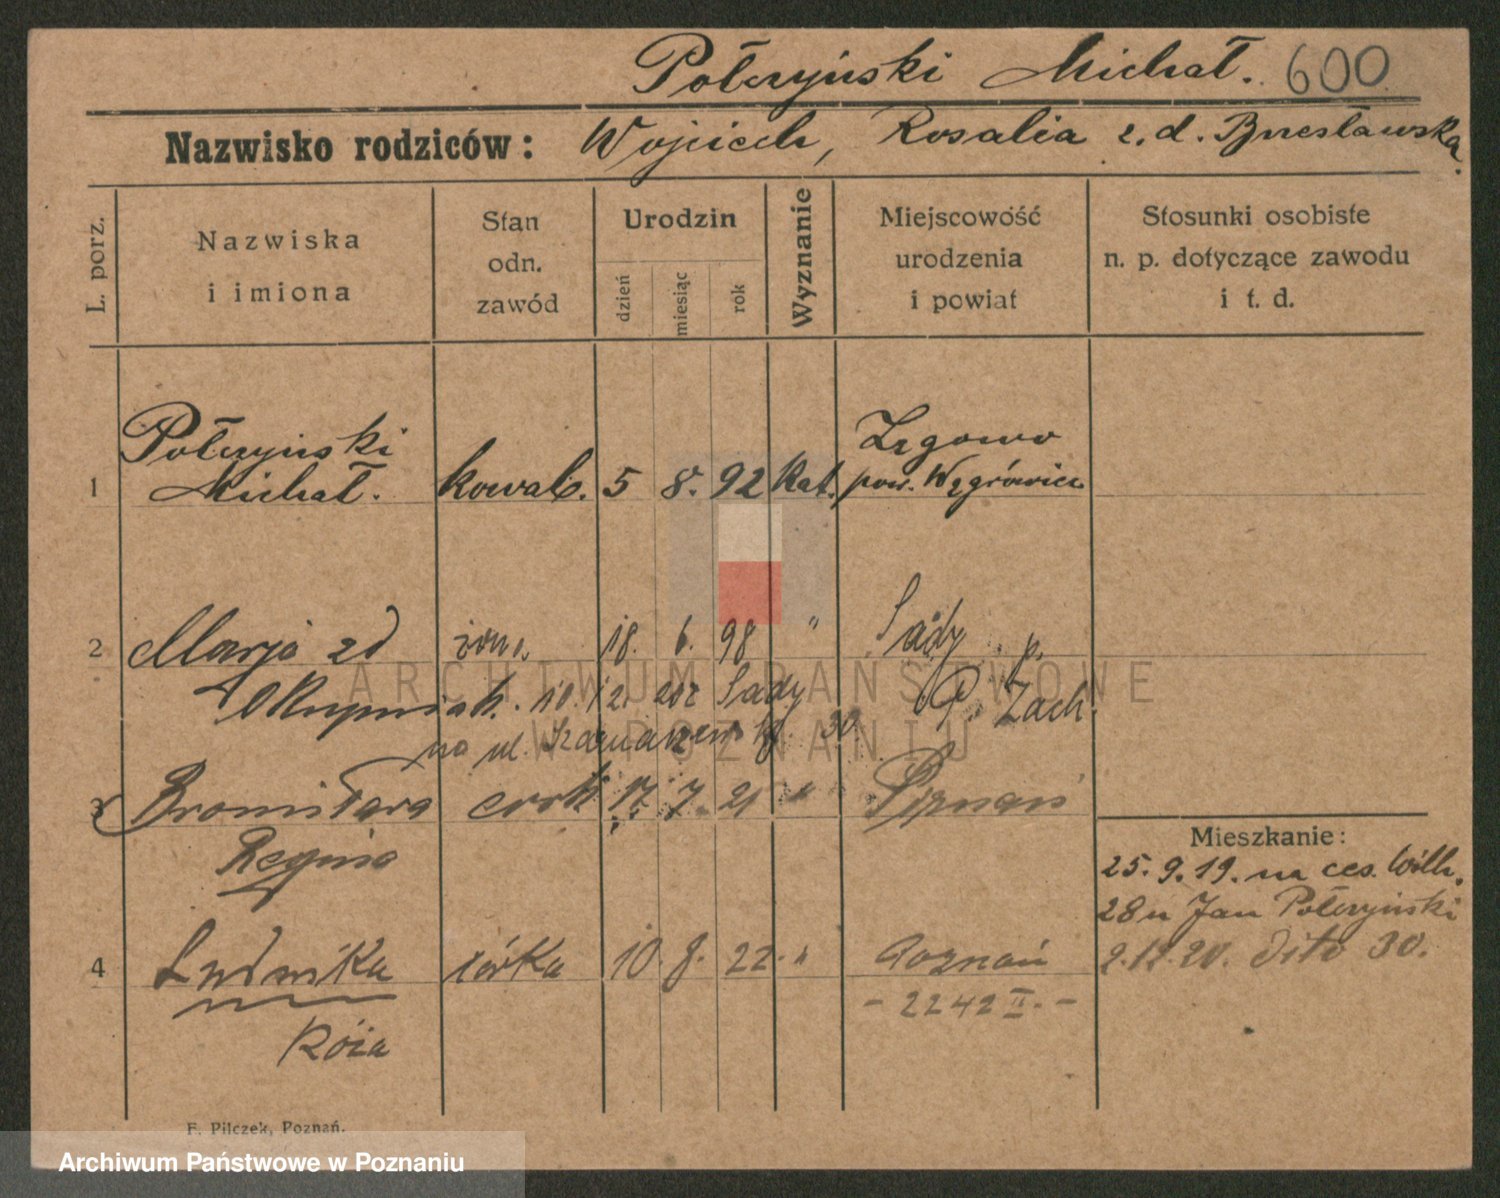 Połczyński Michał. 600
Nazwisko rodziców: Wojciech, Rosalia z. d. Bresławska.
L. porz.
Nazwiska i imiona
Stan odn. zawód
Urodzin
dzień miesiąc rok
Wyznanie
Miejscowość urodzenia i powiat
Stosunki osobiste n. p. dotyczące zawodu i t. d.
Połczyński
Michał.
1 kowal. 5 8. 92 kat.
pow. Wągrówiec
2 Marja zd żona 18. 6. 98 " Sady p.
P. Zach.
10. 12. Sady
na ul. 30
3 Bronisława córk 17. 7. 21 " Poznań
Regina
4 Ludwika córka 10. 8. 22. " Poznań
Róża
- 2242 II. -
Mieszkanie:
25. 9. 19. na ces. Wilh.
28 u Jan Połczyński
2. 12. 20. dito 30.
F. Pilczek, Poznań.
ARCHIWUM PAŃSTWOWE
W POZNANIU
Archiwum Państwowe w Poznaniu